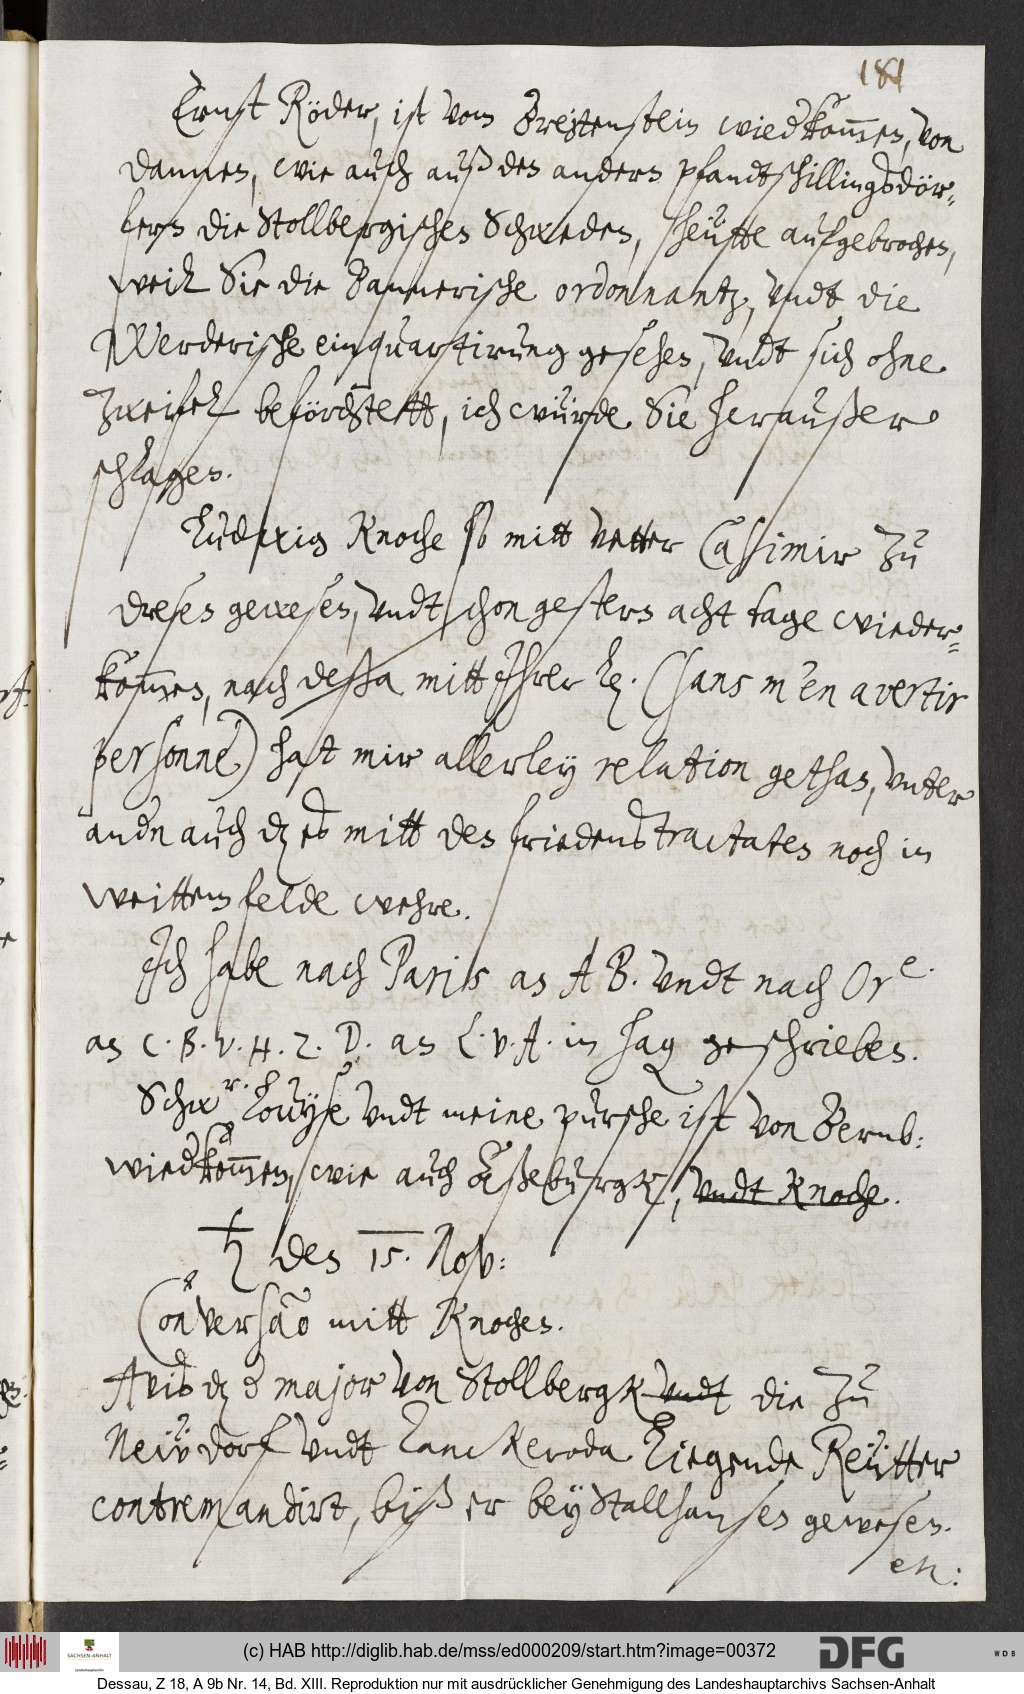 181
Ernst Röder, ist von Breitenstein wiedkommen, von
dannen, wie auch auß den andern pfandtschillingsdör-
fern die Stollbergischen Schweden, heütte aufgebrochen,
weil Sie die Bannerische ordonnantz, vndt die
Werderische einquartirung gesehen, vndt sich ohne
zweifel beförchtett, ich würde Sie heraußer
schlagen.
Ludwig Knoche so mitt Vetter Casimir zu
Dresen gewesen, vndt schon gestern acht tage wieder-
kommen, nach Deßa mitt Ihrer L. (sans m'en avertir
personne) hatt mir allerley relation gethan, vnter
andn auch dz es mitt den friedenstractaten noch in
weittem felde wehre.
Ich habe nach Paris an A B. vndt nach Or e.
an C. B. v. H. Z. D. an L. v. A. in Haag geschrieben.
Schwr. Louyse vndt meine pursche ist von Bernb:
wiedkommen, wie auch Aßeburgk, vndt Knoche.
♄ den 15. Nov:
Conversão mitt Knochen.
Avis dz d major von Stollbergk vndt die zu
Neüdorf vndt Tanckeroda liegende Reütter
contremandirt, biß er bey Stallhansen gewesen.
en:
(c) HAB http://diglib.hab.de/mss/ed000209/start.htm?image=00372
SACHSEN-ANHALT
Landeshauptarchiv
DFG
WDB
Dessau, Z 18, A 9b Nr. 14, Bd. XIII. Reproduktion nur mit ausdrücklicher Genehmigung des Landeshauptarchivs Sachsen-Anhalt